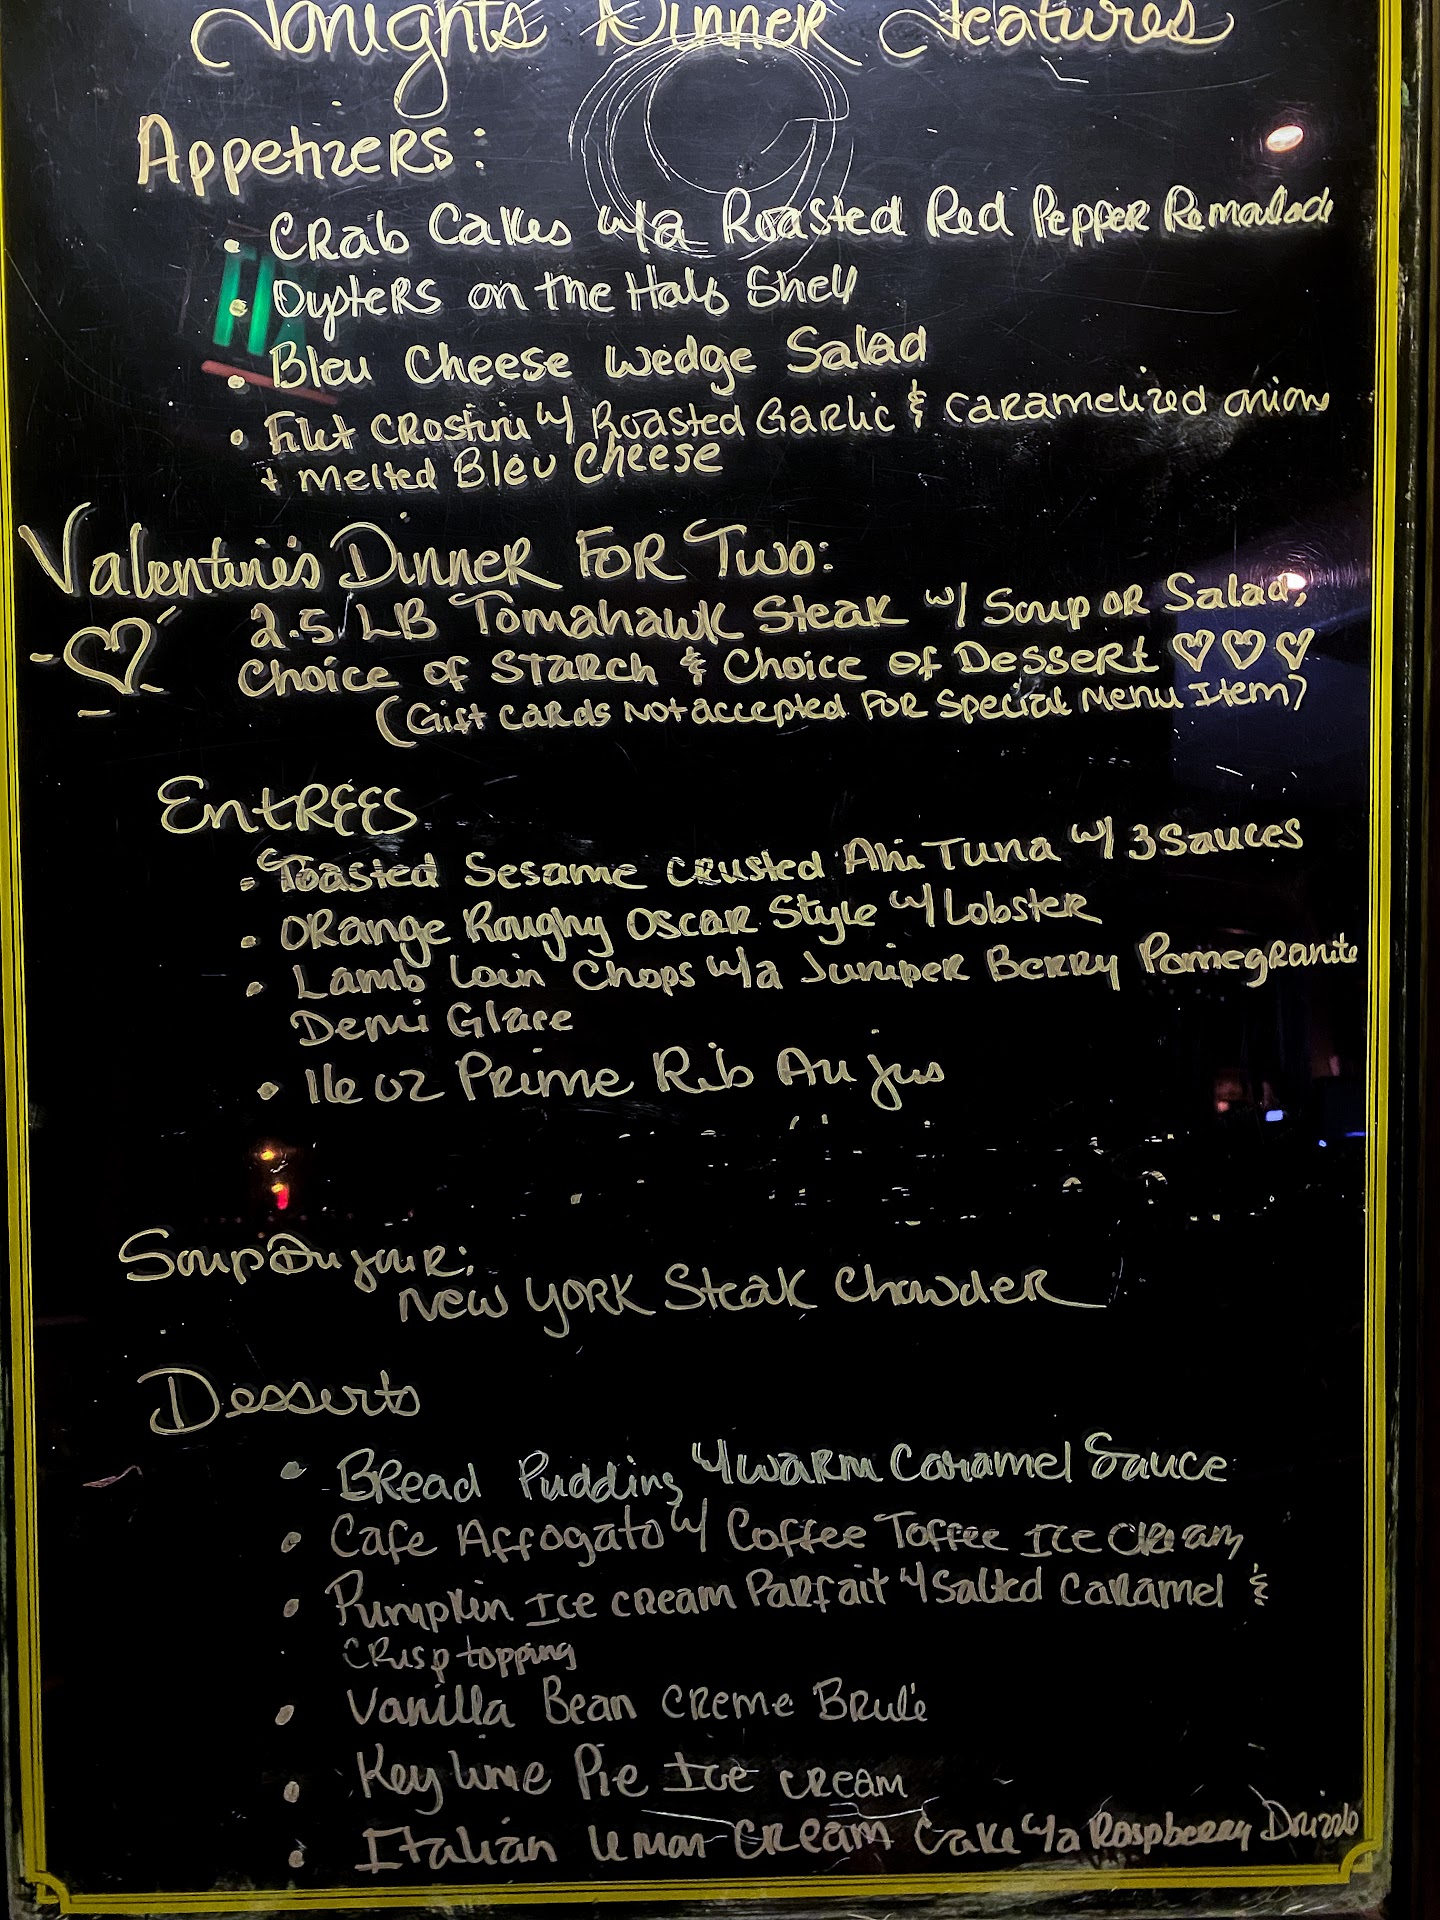 Tonights Dinner Features
Appetizers:
• Crab Cakes w/a Roasted Red Pepper Remoulade
• Oysters on the Half Shell
• Bleu Cheese Wedge Salad
• Filet Crostini w/ Roasted Garlic & Caramelized onions
+ Melted Bleu Cheese
Valentine's Dinner For Two:
2.5 LB Tomahawk Steak w/ Soup or Salad,
Choice of Starch & Choice of Dessert ♡♡♡
(Gift Cards Not accepted For Special Menu Item)
Entrées
• Toasted Sesame Crusted Ahi Tuna w/ 3 Sauces
• Orange Roughy Oscar Style w/ Lobster
• Lamb Loin Chops w/a Juniper Berry Pomegranite
Demi Glace
• 16 oz Prime Rib Au jus
Soup Du jour:
New York Steak Chowder
Desserts
• Bread Pudding w/ warm Caramel Sauce
• Cafe Affogato w/ Coffee Toffee Ice Cream
• Pumpkin Ice cream Parfait w/ Salted Caramel &
Crisp topping
• Vanilla Bean Creme Brulé
• Key lime Pie Ice cream
• Italian lemon Cream Cake w/a Raspberry Drizzle